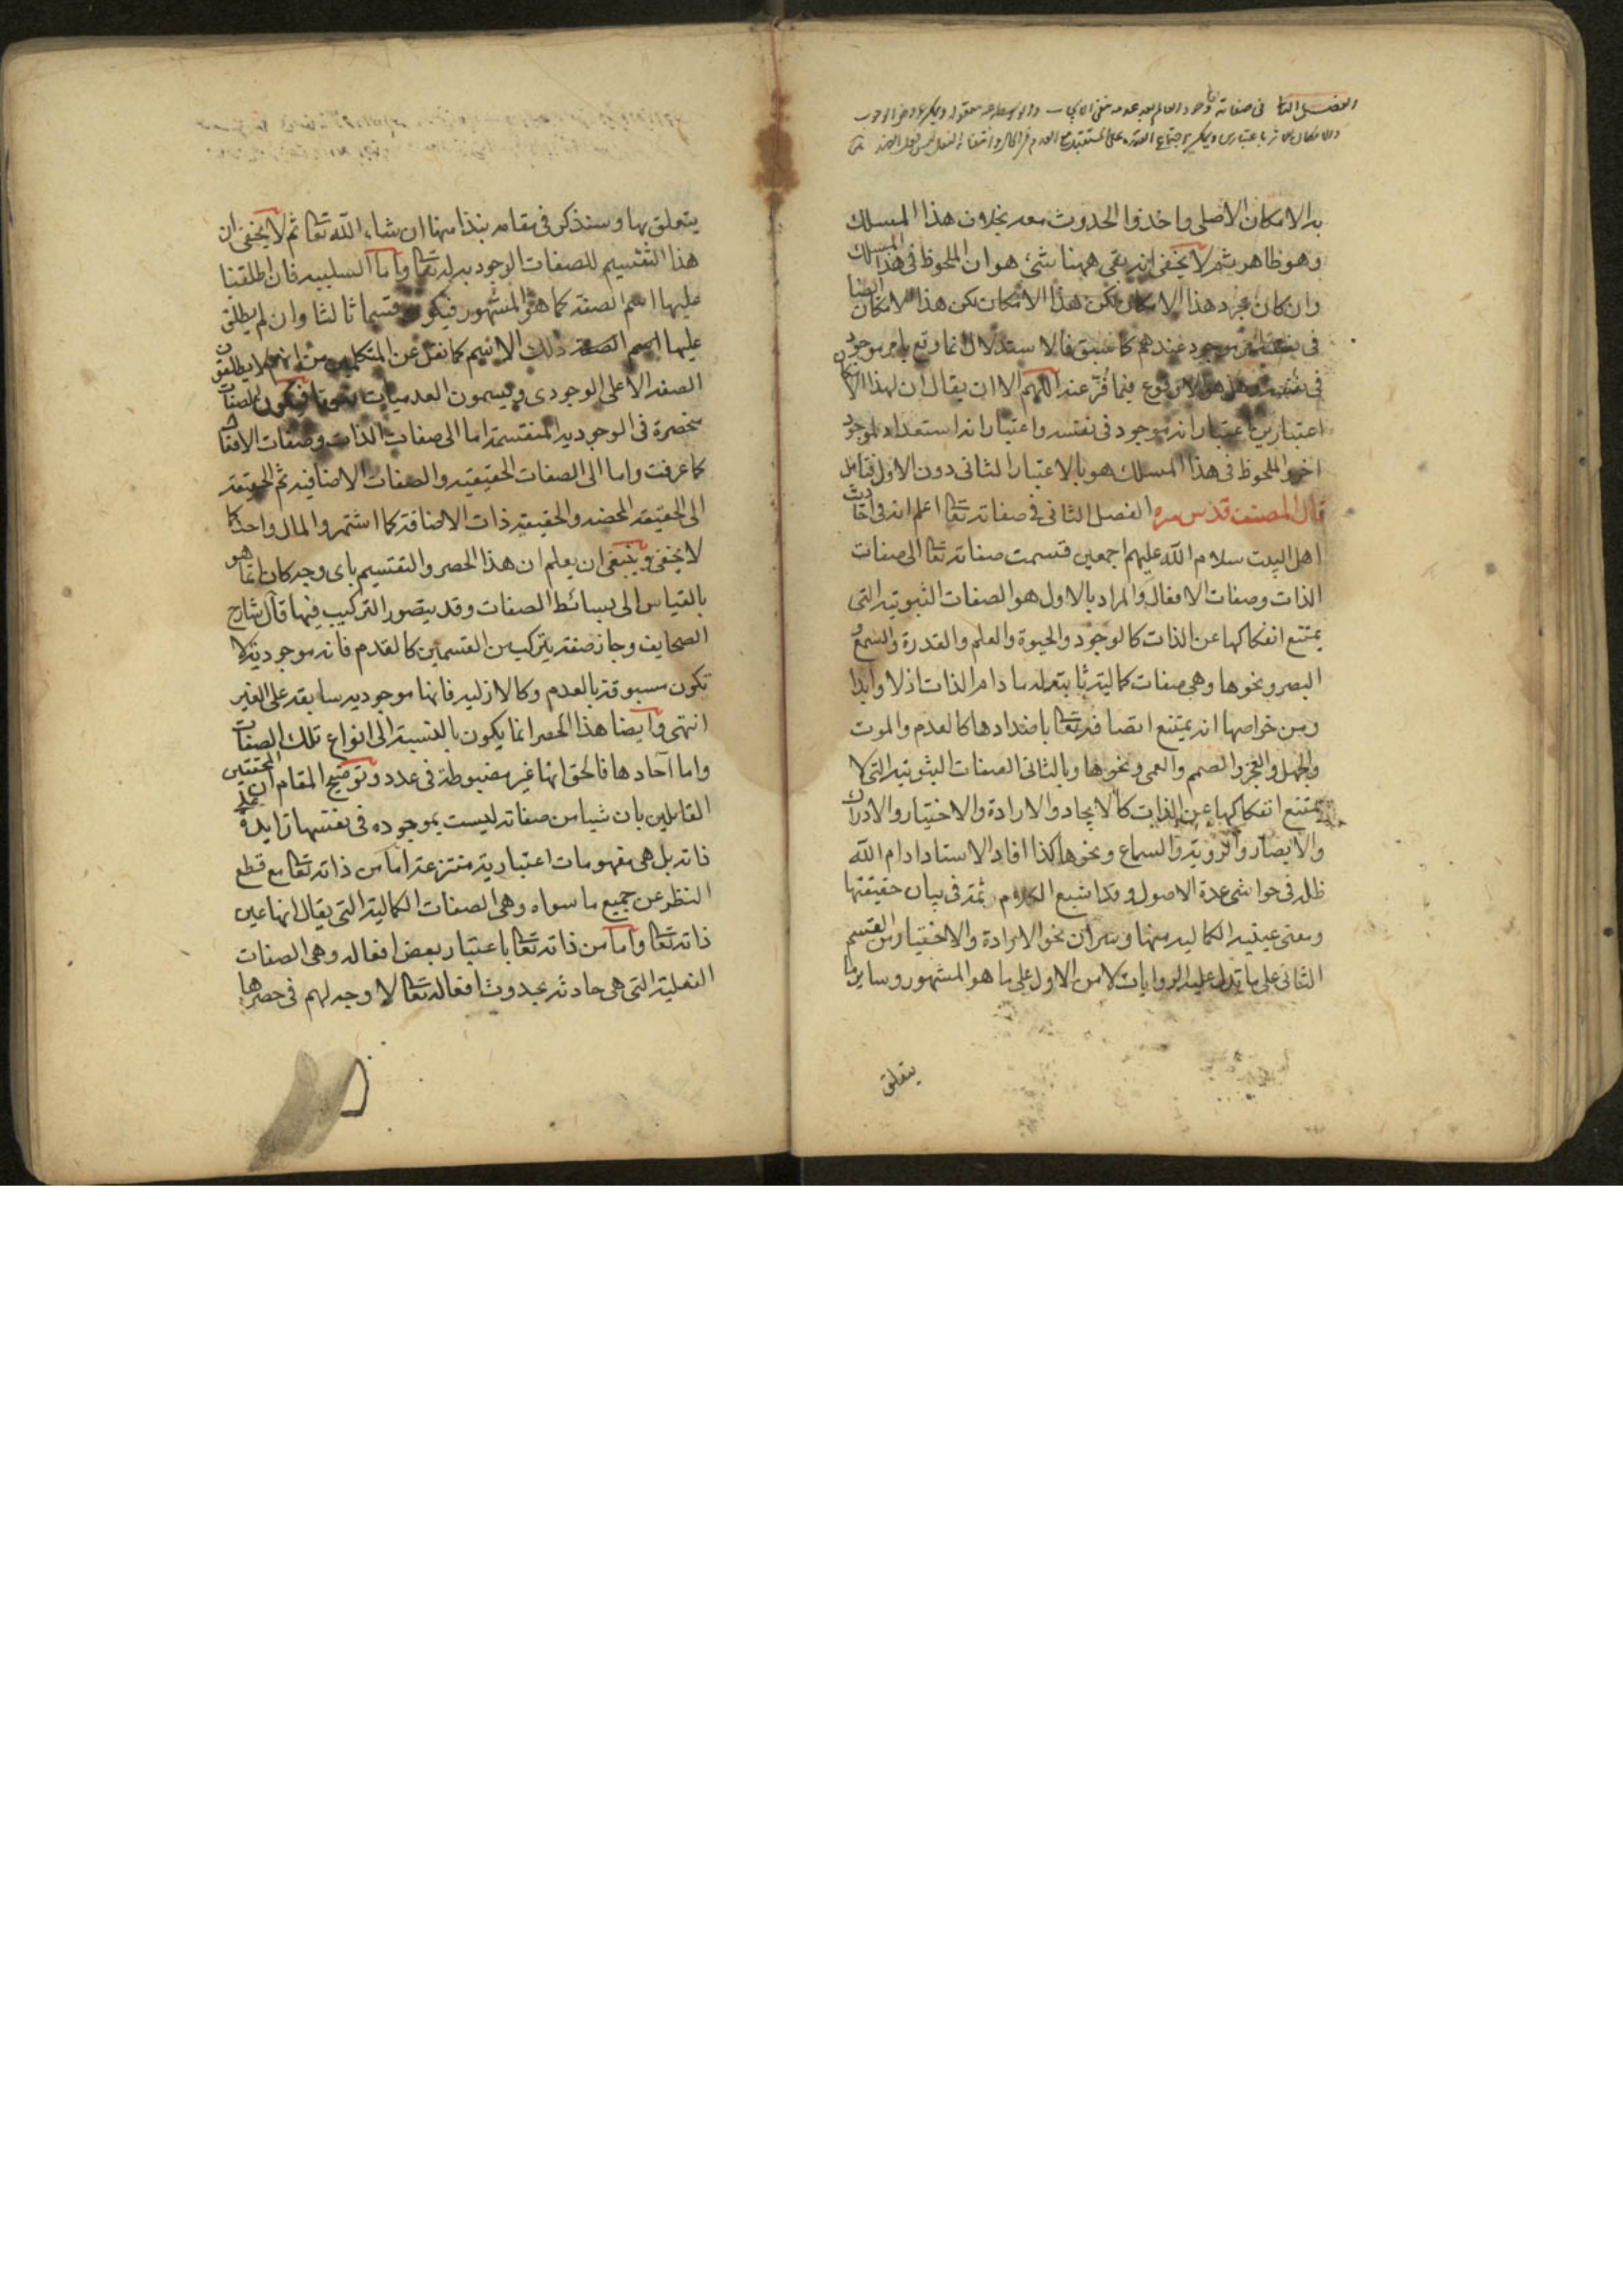 الفصل الثانى فى صفاته وجود العالم بعد عدمه ينفى الايجاب والواسطة غير معقولة ويمكن عروض الوجوب
والامكان للاثر باعتبارين ويمكن اجتماع القدرة على المستقبل مع العدم فى الحال وانتفاء الفعل ليس فعل الضد
به الامكان الاصلى واخذوا الحدوث معه بخلاف هذا المسلك
وهو ظاهر ثم لا يخفى انه بقى ههنا شئ هو ان الملحوظ فى هذا المسلك
وان كان مجرد هذا الامكان لكن هذا الامكان لكن هذا الامكان ايضا
فى نفسه موجود عندهم كما سبق فالاستدلال انما وقع بامر موجود
فى نفسه الا ان يقال ان لهذا الامكان
اعتبارين اعتبار انه موجود فى نفسه واعتبار انه استعداد لموجود
اخر والملحوظ فى هذا المسلك هو بالاعتبار الثانى دون الاول فتامل
قال المصنف قدس سره الفصل الثانى فى صفاته تعا اعلم انه فى احاديث
اهل البيت سلام الله عليهم اجمعين قسمت صفاته تعا الى صفات
الذات وصفات الافعال والمراد بالاول هو الصفات الثبوتية التى
يمتنع انفكاكها عن الذات كالوجود والحيوة والعلم والقدرة والسمع و
البصر ونحوها وهى صفات كمالية ثابتة له ما دام الذات ازلا وابدا
ومن خواصها انه يمتنع اتصافه تعا باضدادها كالعدم والموت
والجهل والعجز والصمم والعمى ونحوها وبالثانى الصفات الثبوتية التى لا
يمتنع انفكاكها عن الذات كالايجاد والارادة والاختيار والادراك
والابصار والرؤية والسماع ونحوها كذا افاد الاستاد ادام الله
ظله فى حواشى عدة الاصول وقد اشبع الكلام ثمة فى بيان حقيقتها
ومعنى عينية الكمالية منها وسر ان نحو الارادة والاختيار من القسم
الثانى على ما تدل عليه الروايات لا من الاول على ما هو المشهور وساير ما
يتعلق
يتعلق بها وسنذكر فى مقامه نبذا منها ان شاء الله تعا ثم لا يخفى ان
هذا التقسيم للصفات الوجودية له تعا واما السلبية فان اطلقنا
عليها اسم الصفة كما هو المشهور فيكون قسما ثالثا وان لم يطلق
عليها اسم الصفة ذلك الاسم كما نقل عن المتكلمين من انهم لا يطلقون
الصفة الا على الوجودى ويسمون العدميات نعوتا فيكون الصفات
منحصرة فى الوجودية المنقسمة اما الى صفات الذات وصفات الافعال
كما عرفت واما الى الصفات الحقيقية والصفات الاضافية ثم الحقيقة
الى الحقيقة المحضة والحقيقة ذات الاضافة كما اشتهر والمال واحد كما
لا يخفى وينبغى ان يعلم ان هذا الحصر والتقسيم باى وجه كان انما هو
بالقياس الى بسائط الصفات وقد يتصور التركيب فيها قال شارح
الصحايف وجاز صفة يتركب من القسمين كالقدم فانه موجودية لا
تكون مسبوقة بالعدم وكالازلية فانها موجودية سابقة على الغير
انتهى وايضا هذا الحصر انما يكون بالنسبة الى انواع تلك الصفات
واما آحادها فالحق انها غير مضبوطة فى عدد وتوضيح المقام ان المحققين
القايلين بان شيا من صفاته ليست بموجوده فى نفسها زايدة على
ذاته بل هى مفهومات اعتبارية منتزعة اما من ذاته تعا مع قطع
النظر عن جميع ما سواه وهى الصفات الكمالية التى يقال انها عين
ذاته تعا واما من ذاته تعا باعتبار بعض افعاله وهى الصفات
الفعلية التى هى حادثة بحدوث افعاله تعا لا وجه لهم فى حصرها